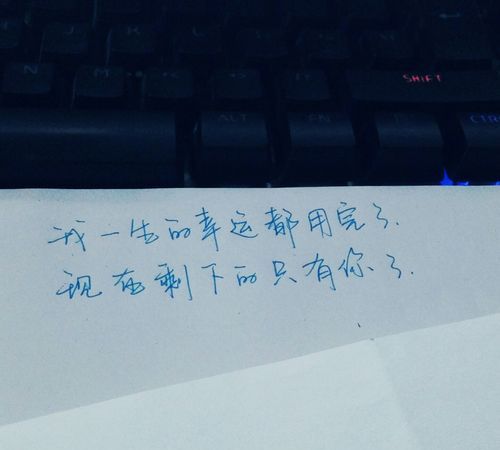 J K L
N M <
ALT FN CTR
SHIFT
我一生的幸运都用完了.
现在剩下的只有你了.